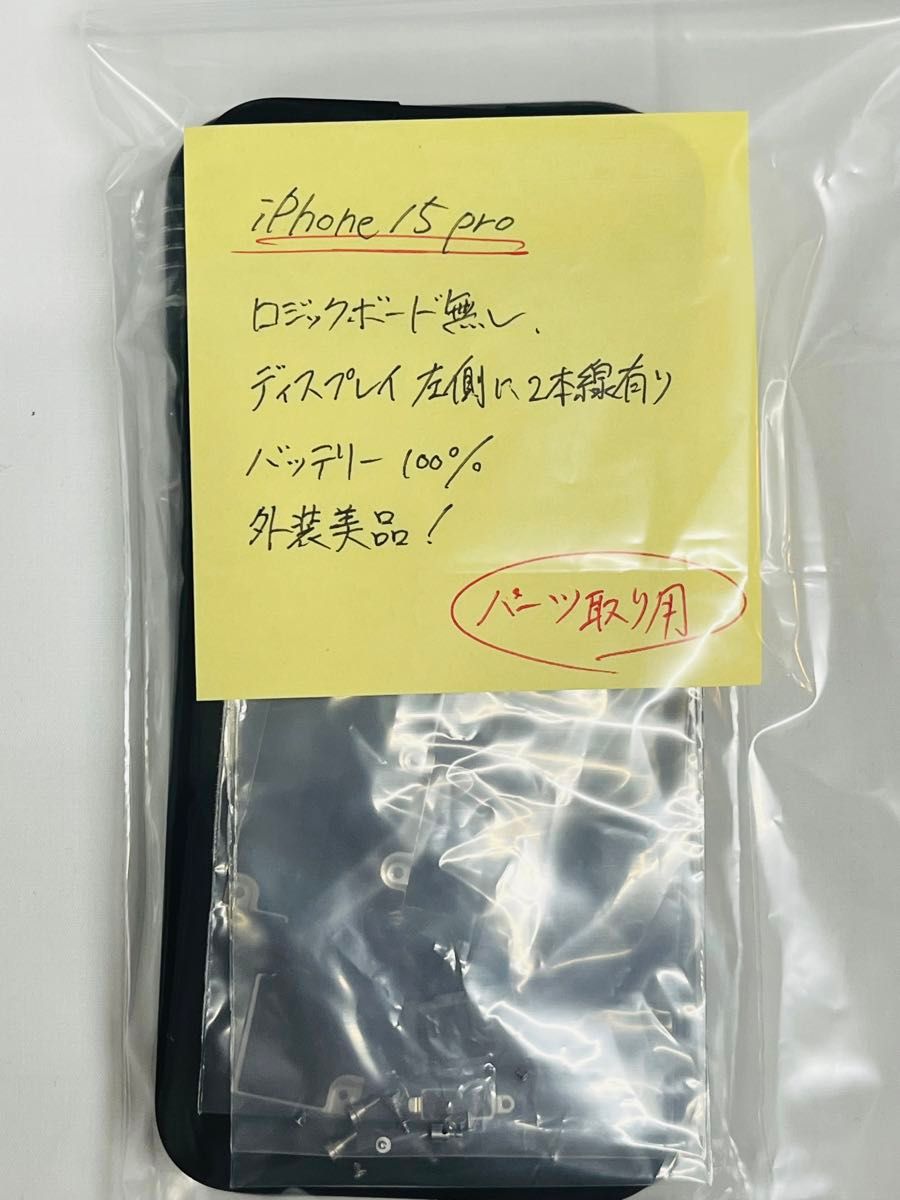 iPhone 15 pro
ロジックボード無し、
ディスプレイ 左側に2本線有り
バッテリー 100%
外装美品!
パーツ取り用